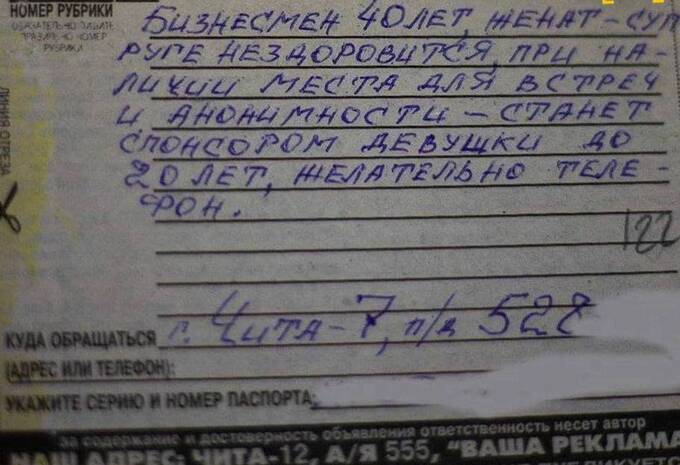 НОМЕР РУБРИКИ
ОБЯЗАТЕЛЬНО ПИШИТЕ
НОМЕР
РУБРИКИ
БИЗНЕСМЕН 40 ЛЕТ, ЖЕНАТ – СУП
РУГЕ НЕЗДОРОВИТСЯ, ПРИ НА-
ЛИЧИИ МЕСТА ДЛЯ ВСТРЕЧ
И АНОНИМНОСТИ – СТАНЕТ
СПОНСОРОМ ДЕВУШКИ ДО
20 ЛЕТ, ЖЕЛАТЕЛЬНО ТЕЛЕ-
ФОН.
122
ЛИНИЯ ОТРЕЗА
КУДА ОБРАЩАТЬСЯ г. ЧИТА-7, п/я 528
(АДРЕС ИЛИ ТЕЛЕФОН):
УКАЖИТЕ СЕРИЮ И НОМЕР ПАСПОРТА:
за содержание и достоверность объявления ответственность несет автор
НАШ АДРЕС: ЧИТА-12, А/Я 555, "ВАША РЕКЛАМА